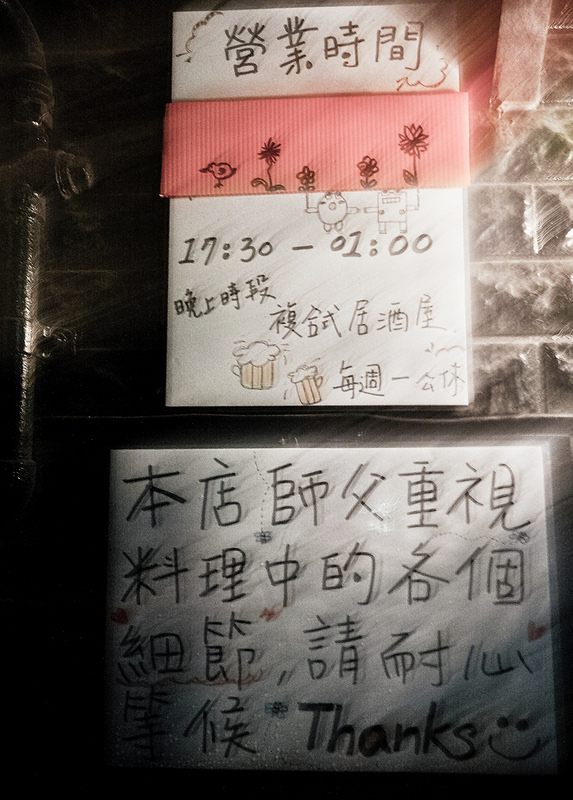 營業時間
17:30 - 01:00
晚上時段
複合式居酒屋
每週一公休
本店師父重視
料理中的各個
細節,請耐心
等候 Thanks